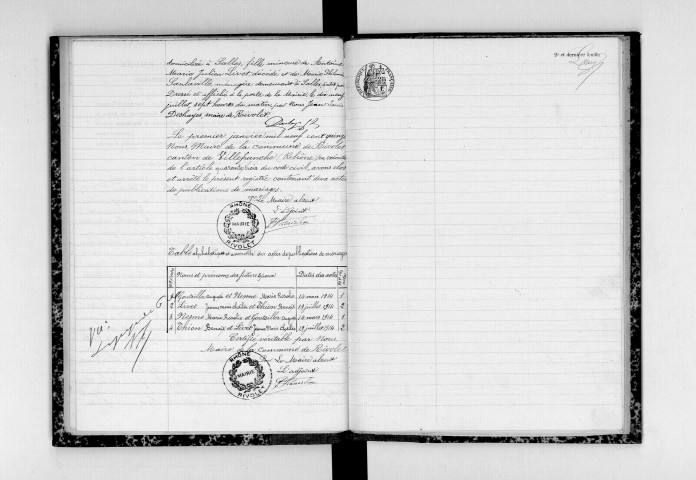 domiciliée à Salles, fille mineure de Antoine
Marie Julien Livet décédé et de Marie
ménagère demeurant à Salles
Dressé et affiché à la porte de la Mairie, le dix neuf
juillet, sept heures du matin par Nous Jean Louis
Deshayes, maire de Rivolet.
Le premier janvier mil neuf cent quinze
Nous Maire de la commune de Rivolet
canton de Villefranche (Rhône) en vertu
de l'article quarante trois du code civil, avons clos
et arrêté le présent registre contenant deux actes
de publications de mariages.
Le Maire absent
l'adjoint
RHÔNE
MAIRIE
RIVOLET
Table alphabétique et annuelle des actes de publications de mariages
Noms et prénoms des futurs époux
Dates des actes
et Nesme Marie 14 mars 1914 1
2 Livet Jeanne Marie et Thion Benoit 19 juillet 1914 2
3 Nesme Marie et 14 mars 1914 1
4 Thion Benoit et Livet Jeanne Marie 19 juillet 1914 2
Certifié véritable par Nous
Maire de la commune de Rivolet
Le Maire absent
L'adjoint
RHÔNE
MAIRIE
RIVOLET
9e et dernier feuillet